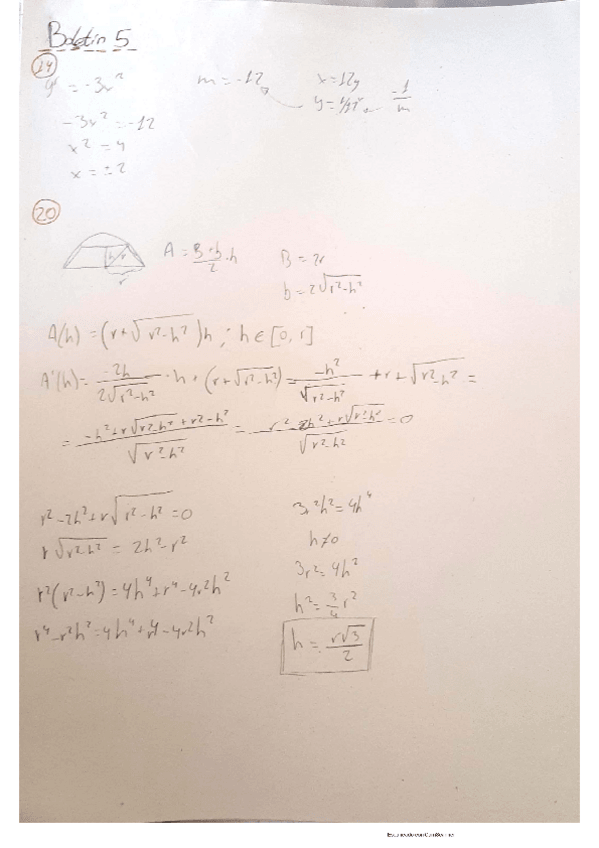 Boletín 5
14
y' = -3x²
m = -12
x = 12y
y = 1/12 x
-1/m
-3x² = -12
x² = 4
x = ±2
20
A = B·b/2 · h
B = 2r
b = 2√(r²-h²)
A(h) = (r+√(r²-h²))h ; h ∈ [0, r]
A'(h) = -2h/(2√(r²-h²)) · h + (r+√(r²-h²)) = -h²/√(r²-h²) + r + √(r²-h²) =
= (-h²+r√(r²-h²)+r²-h²)/√(r²-h²) = (r²-2h²+r√(r²-h²))/√(r²-h²) = 0
r²-2h²+r√(r²-h²) = 0
r√(r²-h²) = 2h²-r²
r²(r²-h²) = 4h⁴+r⁴-4r²h²
r⁴-r²h² = 4h⁴+r⁴-4r²h²
3r²h² = 4h⁴
h≠0
3r² = 4h²
h² = 3/4 r²
h = r√3/2
Escaneado con CamScanner